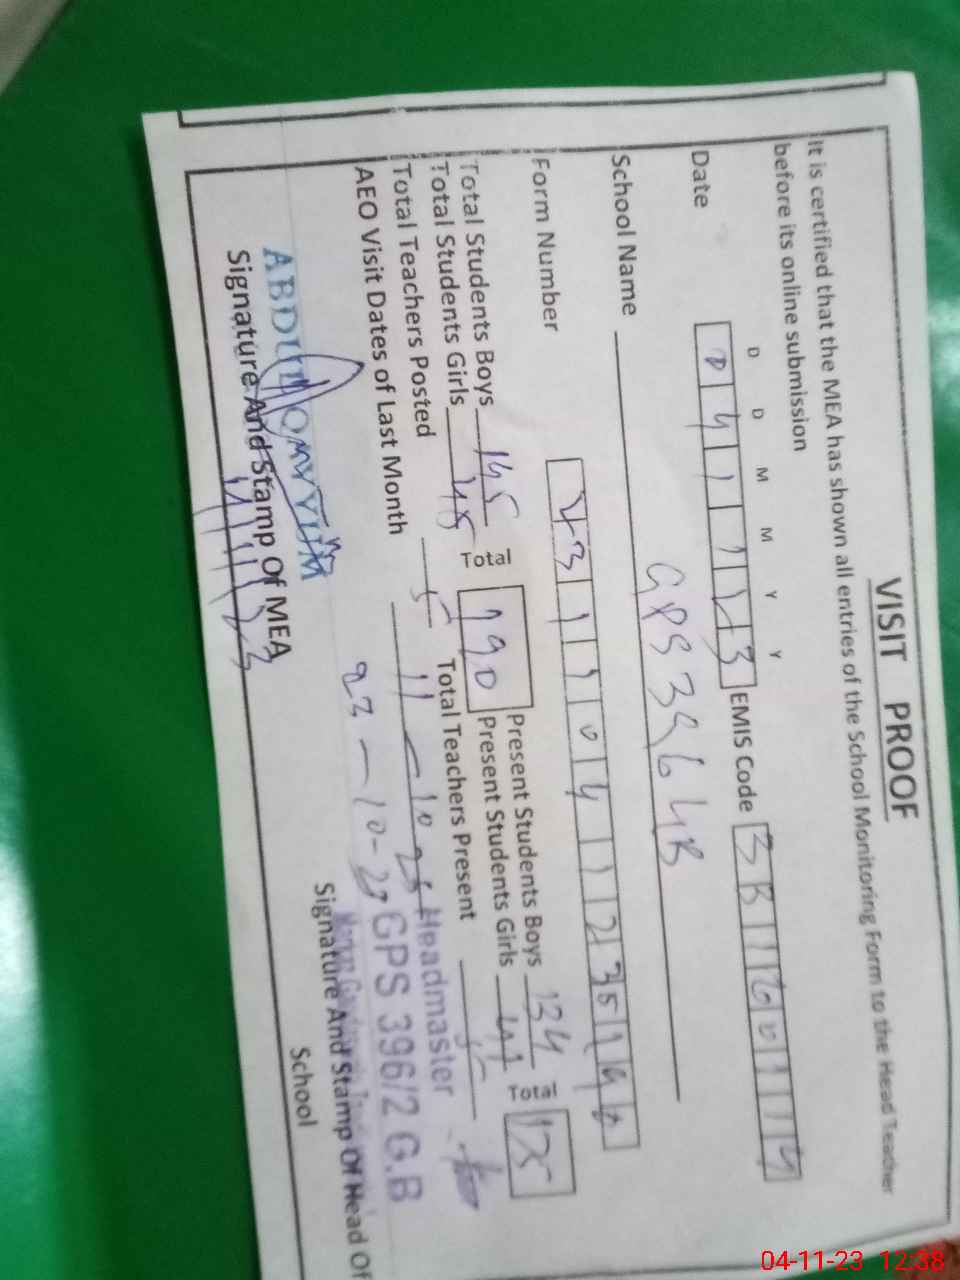 VISIT PROOF
It is certified that the MEA has shown all entries of the School Monitoring Form to the Head Teacher
before its online submission
D D M M Y Y
Date 0 4 1 1 2 3 EMIS Code 3 3 1 1 0 1 1 4
School Name GPS 396 GB
Form Number 2 3 1 1 0 4 1 1 2 3 5 1 4
Total Students Boys 145 Total 190 Present Students Boys 134 Total 175
Total Students Girls 45 Present Students Girls 41
Total Teachers Posted 5 Total Teachers Present 5
AEO Visit Dates of Last Month 11-10-23
23-10-23
Headmaster
GPS 396/2 G.B
ABDUL QAYYUM
Signature And Stamp Of MEA
4/11/23
Signature And Stamp Of Head Of
School
04-11-23 12:38